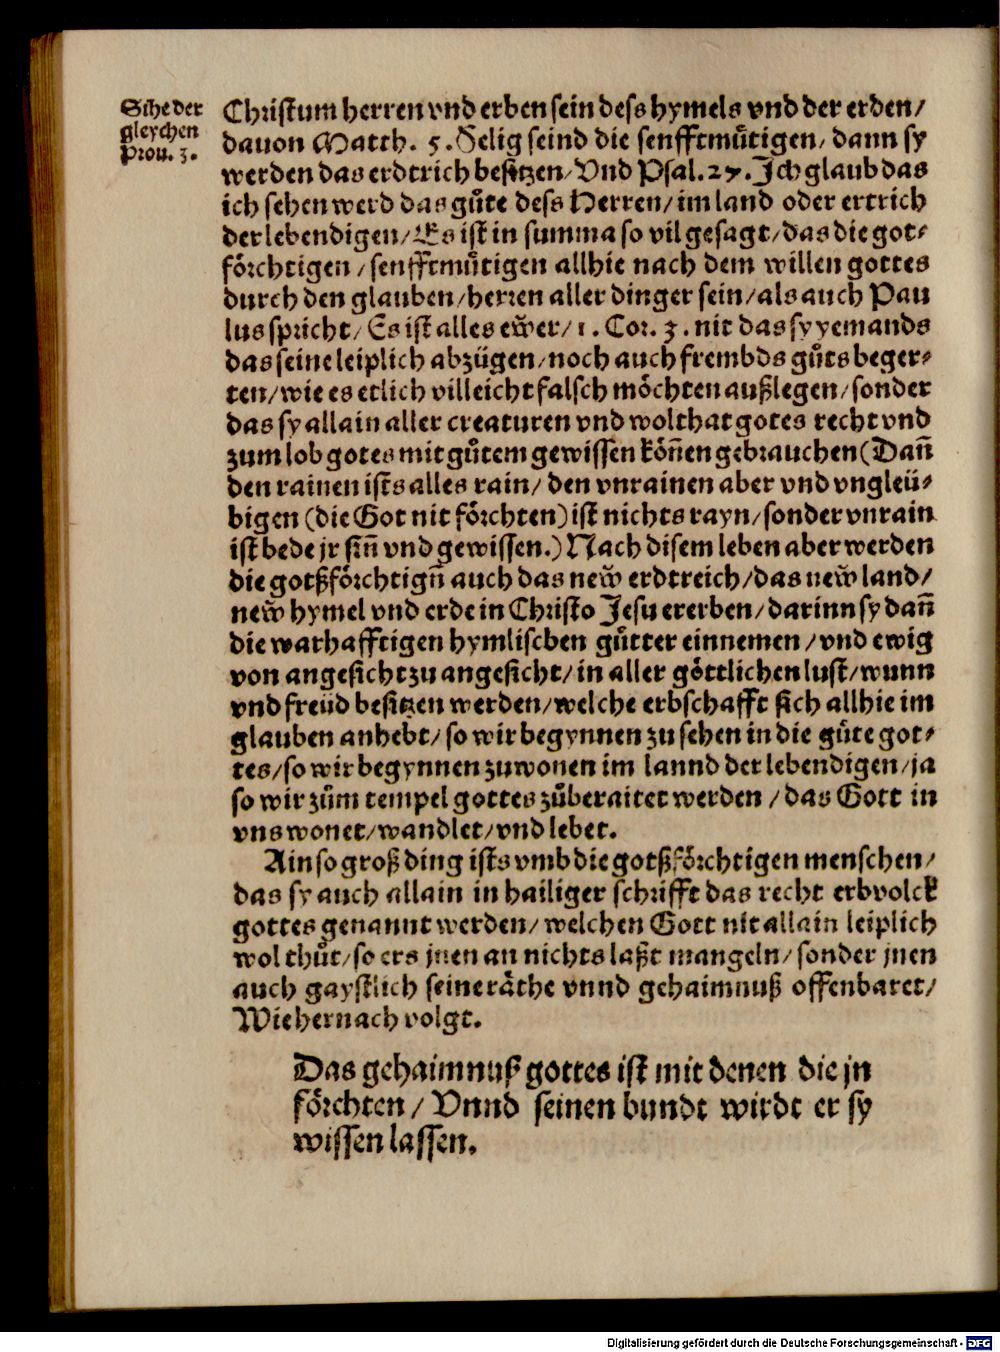 Sihe der
gleychen
Prou. 3.
Christum herren vnd erben sein dess hymels vnd der erden/
dauon Matth. 5. Selig seind die senfftmuͤtigen/ dann sy
werden das erdtrich besitzen/ Vnd Psal. 27. Ich glaub das
ich sehen werd das guͤte dess Herren/ im land oder ertrich
der lebendigen/ Es ist in summa so vil gesagt/ das die got⸗
foͤrchtigen / senfftmuͤtigen allhie nach dem willen gottes
durch den glauben/ herren aller dinger sein/ als auch Pau
lus spricht/ Es ist alles eẅer/ 1. Cor. 3. nit das sy yemands
das seine leiplich abzügen/ noch auch frembds guͤts beger⸗
ten/ wie es etlich villeicht falsch moͤchten außlegen/ sonder
das sy allain aller creaturen vnd wolthat gotes recht vnd
zum lob gotes mit guͤtem gewissen koͤñen gebrauchen (Dañ
den rainen ists alles rain/ den vnrainen aber vnd vngleü⸗
bigen (die Got nit foͤrchten) ist nichts rayn/ sonder vnrain
ist bede jr siñ vnd gewissen.) Nach disem leben aber werden
die gotßfoͤrchtigñ auch das neẅ erdtreich/ das neẅ land/
neẅ hymel vnd erde in Christo Jesu ererben/ darinn sy dañ
die warhafftigen hymlischen guͤtter einnemen / vnd ewig
von angesicht zu angesicht/ in aller goͤttlichen lust/ wunn
vnd freüd besitzen werden/ welche erbschafft sich allhie im
glauben anhebt/ so wir begynnen zu sehen in die guͤte got⸗
tes/ so wir begynnen zuwonen im lannd der lebendigen/ ja
so wir zuͤm tempel gottes zuͤberaitet werden / das Gott in
vns wonet/ wandlet/ vnd lebet.
Ain so groß ding ists vmb die gotßfoͤrchtigen menschen/
das sy auch allain in hailiger schrifft das recht erbvolck
gottes genannt werden/ welchen Gott nit allain leiplich
wol thuͤt/ so ers jnen an nichts laßt mangeln/ sonder jnen
auch gaystlich seine raͤthe vnnd gehaimnuß offenbaret/
Wie hernach volgt.
Das gehaimnuß gottes ist mit denen die jn
foͤrchten / Vnnd seinen bundt wirdt er sy
wissen lassen.
Digitalisierung gefördert durch die Deutsche Forschungsgemeinschaft - DFG